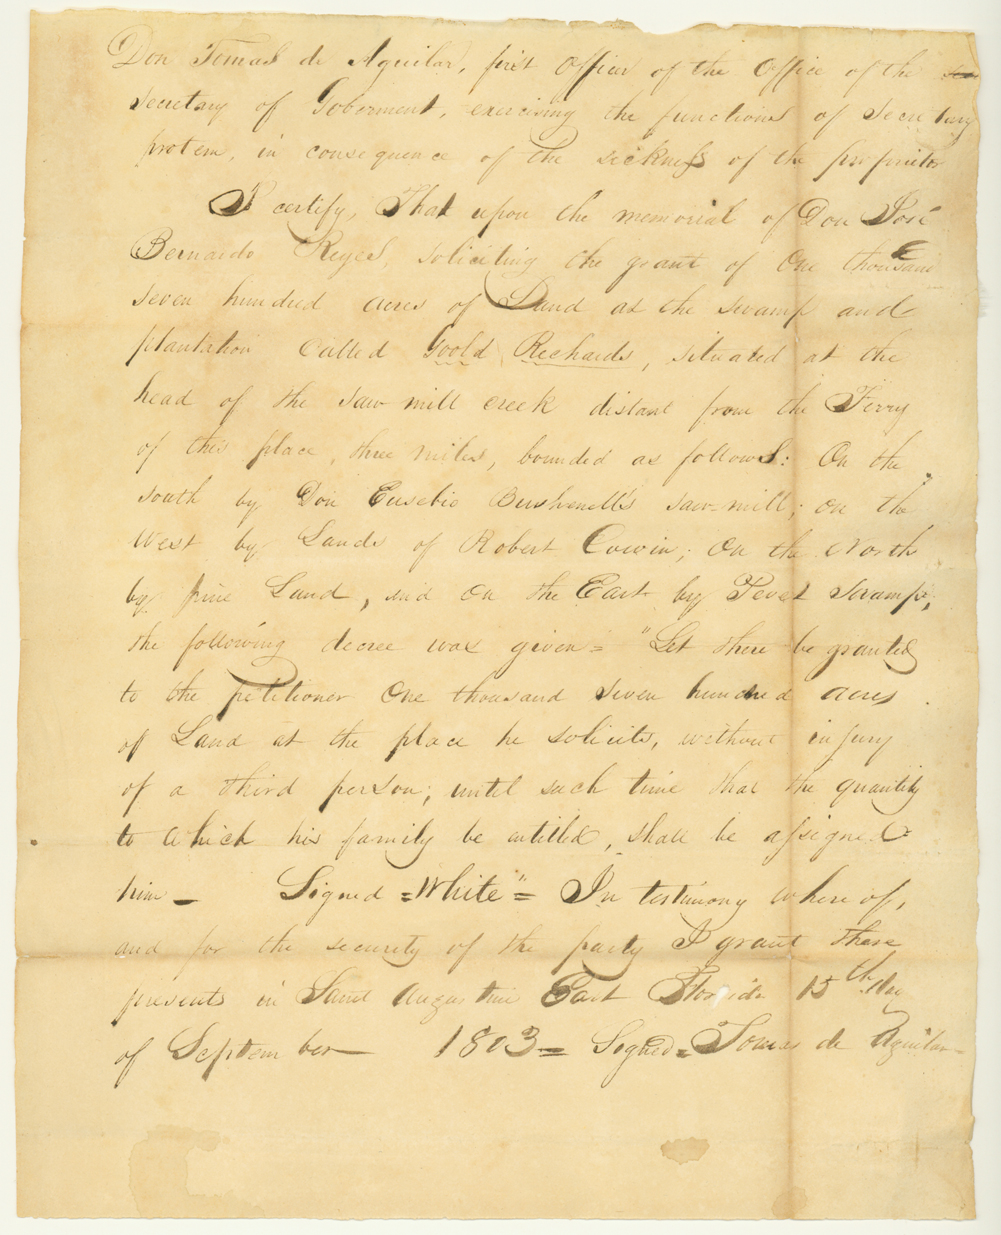 Don Tomas de Aguilar, first Officer of the Office of the
secretary of Goberment, exercising the functions of secretary
protem, in consequence of the sickness of the proprietor
I certify, That upon the memorial of Don José
Bernardo Reyes, soliciting the grant of One thousand
seven hundred acres of Land at the swamp and
plantation called Goold Richards, situated at the
head of the saw mill creek distant from the Ferry
of this place, three miles, bounded as follows: On the
south by Don Eusebio Bushnell's saw-mill; on the
West by Lands of Robert Cowin; On the North
by pine Land, and on the East by Swamp;
the following decree was given = "Let there be granted
to the petitioner One thousand seven hundred acres
of Land at the place he solicits, without injury
of a third person; until such time that the quantity
to which his family be entitled, shall be assigned
him — Signed = White" = In testimony where of,
and for the security of the party I grant these
presents in Saint Augustine East Florida 15th day
of September 1803 = Signed = Tomas de Aguilar